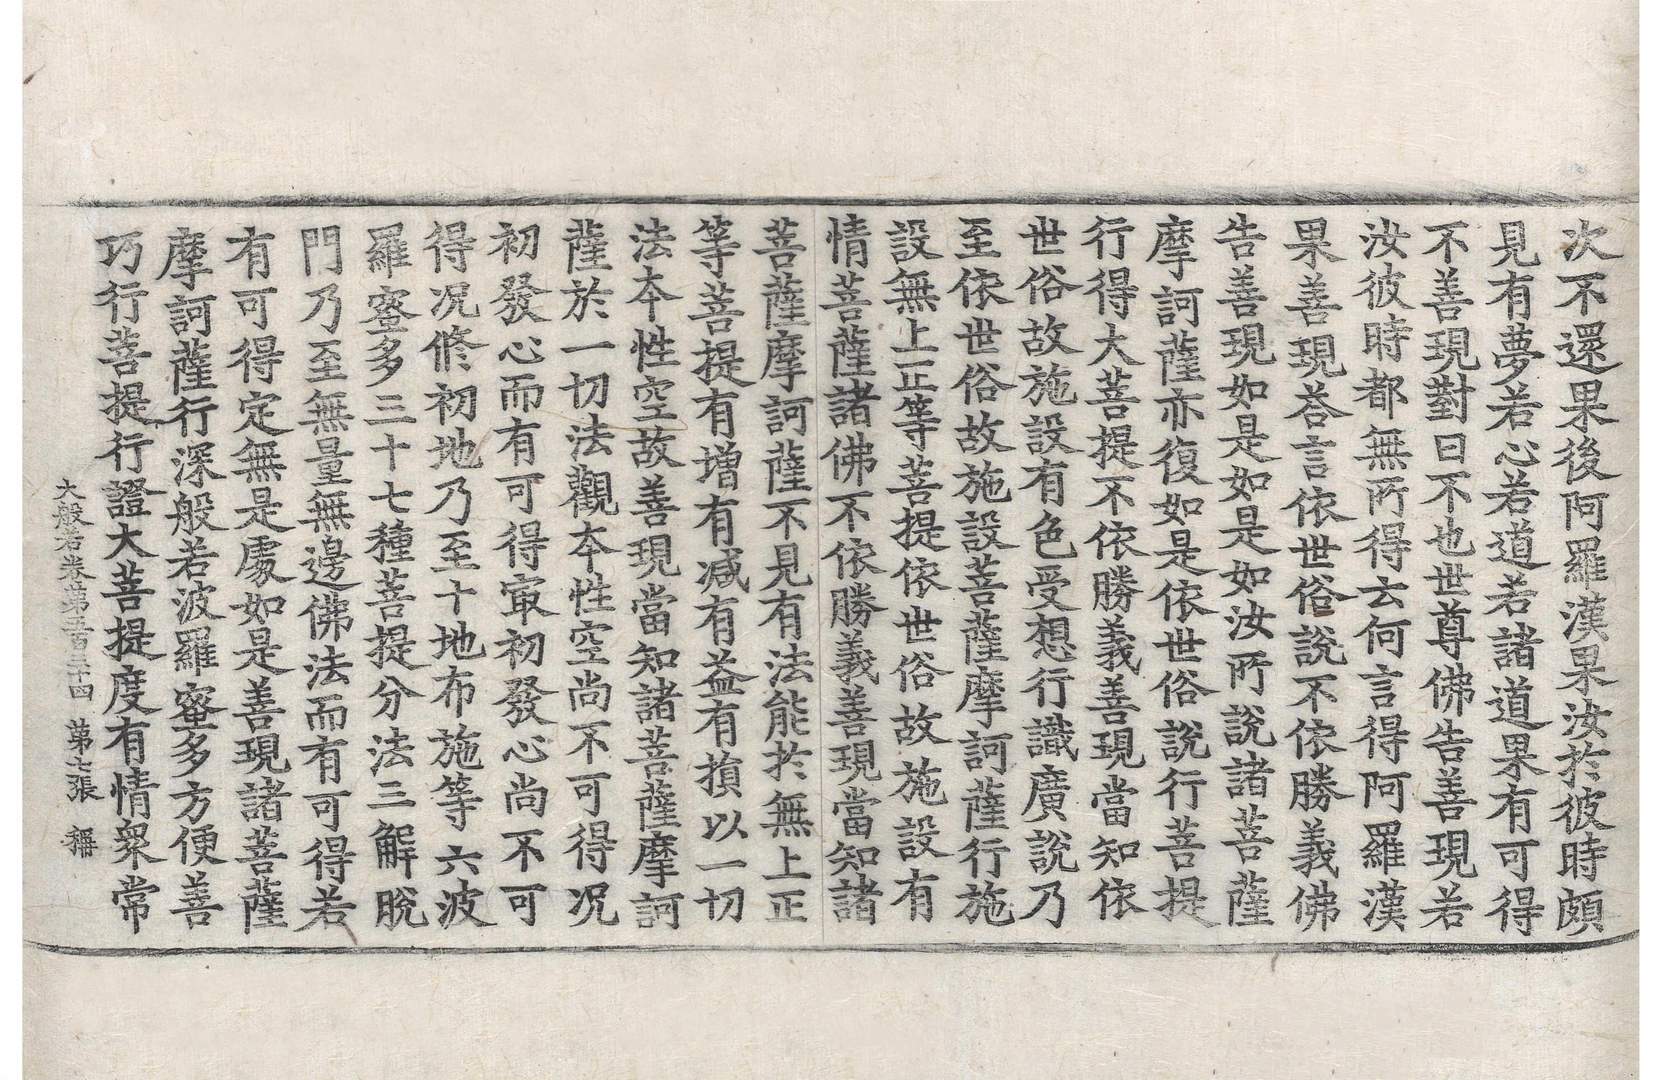 次不還果後阿羅漢果汝於彼時頗
見有夢若心若道若諸道果有可得
不善現對曰不也世尊佛告善現若
汝彼時都無所得云何言得阿羅漢
果善現荅言依世俗說不依勝義佛
告善現如是如是如汝所說諸菩薩
摩訶薩亦復如是依世俗說行菩提
行得大菩提不依勝義善現當知依
世俗故施設有色受想行識廣說乃
至依世俗故施設菩薩摩訶薩行施
設無上正等菩提依世俗故施設有
情菩薩諸佛不依勝義善現當知諸
菩薩摩訶薩不見有法能於無上正
等菩提有增有減有益有損以一切
法本性空故善現當知諸菩薩摩訶
薩於一切法觀本性空尚不可得況
初發心而有可得㝡初發心尚不可
得況修初地乃至十地布施等六波
羅蜜多三十七種菩提分法三解脫
門乃至無量無邊佛法而有可得若
有可得定無是處如是善現諸菩薩
摩訶薩行深般若波羅蜜多方便善
巧行菩提行證大菩提度有情衆常
大般若卷第五百三十四　第七張　稱